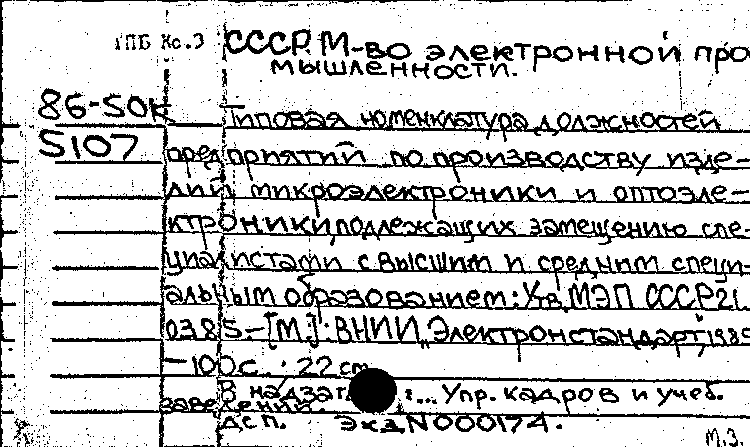 ГПБ Кс.3 СССР. М-во электронной про
мышленности.
86-50К Типовая номенклатура должностей
5107 предприятий по производству изде-
лий микроэлектроники и оптоэле-
ктроники, подлежащих замещению спе-
циалистами с высшим и средним специ-
альным образованием: Утв. МЭП СССР 21.
03.85.-[М.]: ВНИИ "Электронстандарт", 1985
-100 с.; 22 см
В надзаг : ... Упр. кадров и учеб.
заведений.
ДСП. Экз. N 000174.
М.З.